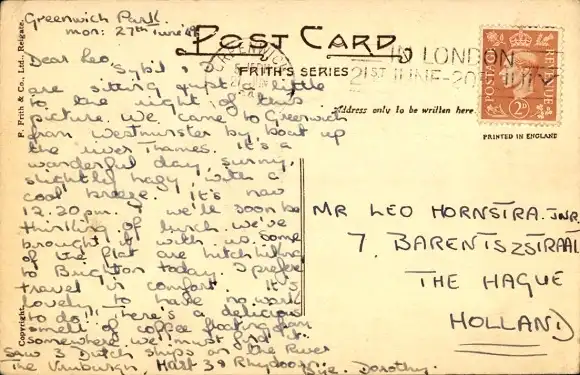 Greenwich Park.
Mon: 27th June
POST CARD
FRITH'S SERIES
Address only to be written here.
POSTAGE REVENUE
2D
PRINTED IN ENGLAND
GREENWICH
IN LONDON
21ST JUNE-20
F. Frith & Co., Ltd., Reigate.
Copyright.
Dear Leo,
Sybil & I
are sitting just a little
to the right of this
picture. We came to Greenwich
from Westminster by boat up
the river Thames. It's a
wonderful day, sunny,
slightly hazy, with a
cool breeze. It's now
12.20pm. & we'll soon be
thinking of lunch. We've
brought it with us. Some
of the flat are hitch hiking
to Brighton today. I prefer
travel in comfort. It's
lovely to have no work
to do!! There's a delicious
smell of coffee floating from
somewhere, we must find it.
Saw 3 Dutch ships on the River
The Hart 38
Bye. Dorothy.
MR LEO HORNSTRA. JNR.
7, BARENTSZSTRAAT
THE HAGUE
HOLLAND